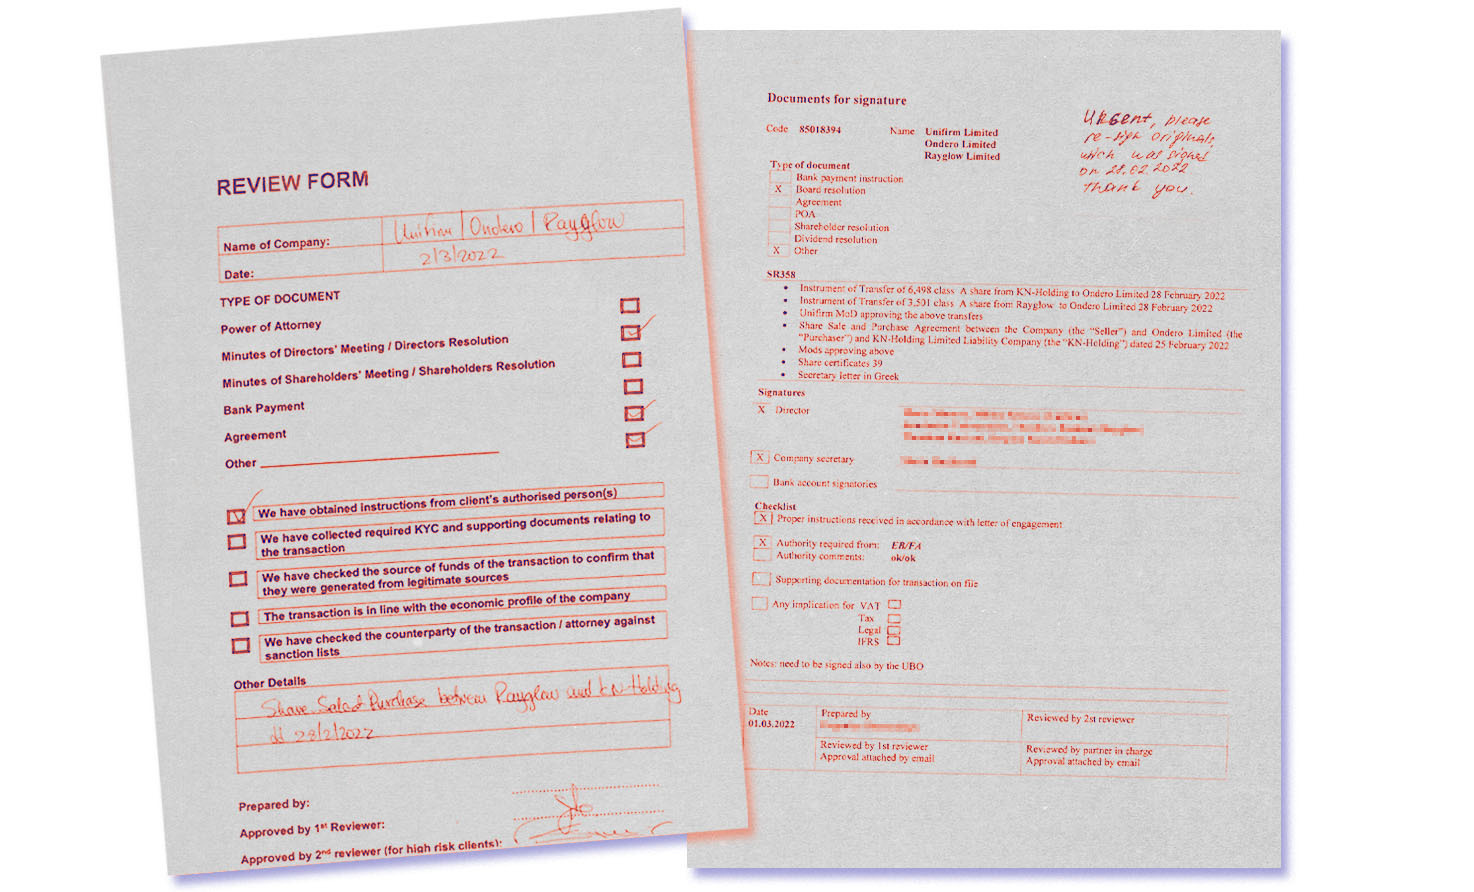 REVIEW FORM
Name of Company: Unifirm | Ondero | Rayglow
Date: 2/3/2022
TYPE OF DOCUMENT
Power of Attorney
Minutes of Directors' Meeting / Directors Resolution
Minutes of Shareholders' Meeting / Shareholders Resolution
Bank Payment
Agreement
Other
We have obtained instructions from client's authorised person(s)
We have collected required KYC and supporting documents relating to
the transaction
We have checked the source of funds of the transaction to confirm that
they were generated from legitimate sources
The transaction is in line with the economic profile of the company
We have checked the counterparty of the transaction / attorney against
sanction lists
Other Details
Share Sale & Purchase between Rayglow and KN-Holding
dd 28/2/2022
Prepared by:
Approved by 1st Reviewer:
Approved by 2nd reviewer (for high risk clients):
Documents for signature
Urgent, please
re-sign originals,
which was signed
on 28.02.2022
thank you.
Code 85018394 Name Unifirm Limited
Ondero Limited
Rayglow Limited
Type of document
Bank payment instruction
X Board resolution
Agreement
POA
Shareholder resolution
Dividend resolution
X Other
SR358
• Instrument of Transfer of 6,498 class A share from KN-Holding to Ondero Limited 28 February 2022
• Instrument of Transfer of 3,501 class A share from Rayglow to Ondero Limited 28 February 2022
• Unifirm MoD approving the above transfers
• Share Sale and Purchase Agreement between the Company (the "Seller") and Ondero Limited (the
"Purchaser") and KN-Holding Limited Liability Company (the "KN-Holding") dated 25 February 2022
• Mods approving above
• Share certificates 39
• Secretary letter in Greek
Signatures
X Director
X Company secretary
Bank account signatories
Checklist
X Proper instructions received in accordance with letter of engagement
X Authority required from: EB/FA
Authority comments: ok/ok
Supporting documentation for transaction on file
Any implication for VAT
Tax
Legal
IFRS
Notes: need to be signed also by the UBO
Date
01.03.2022
Prepared by
Reviewed by 2st reviewer
Reviewed by 1st reviewer
Approval attached by email
Reviewed by partner in charge
Approval attached by email